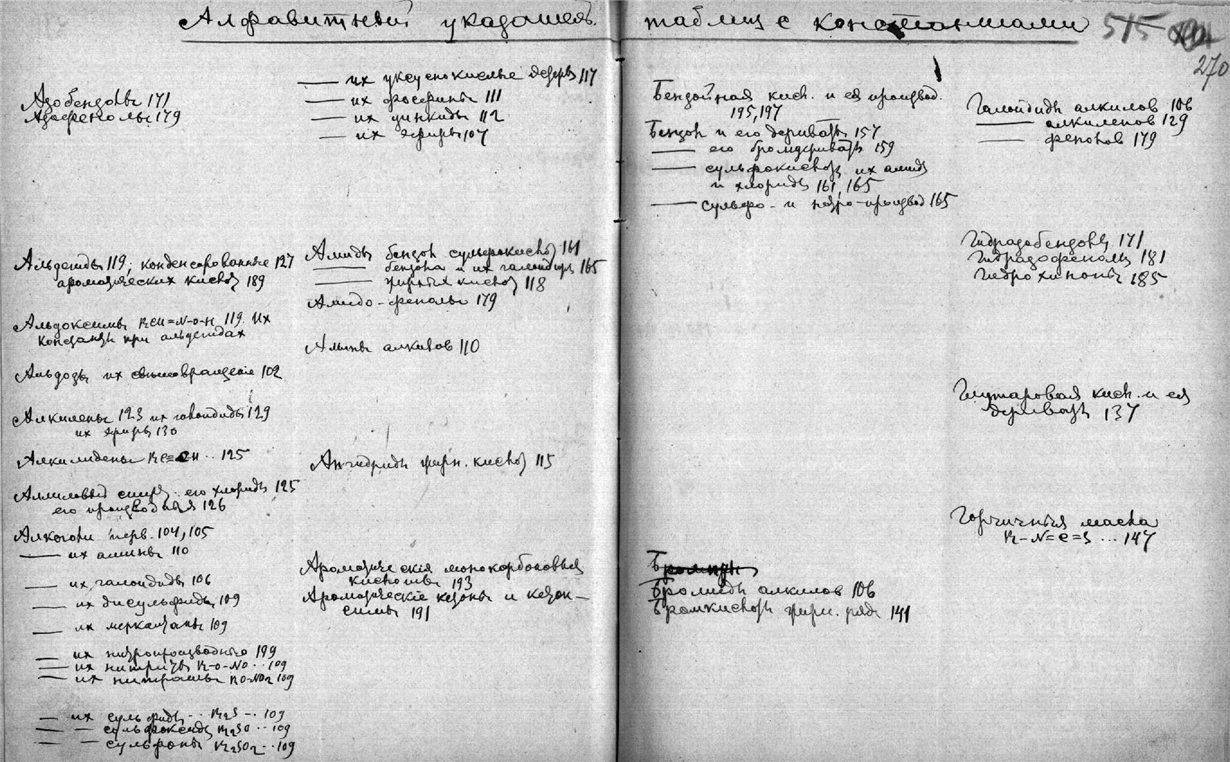 Алфавитный указатель таблиц с константами 515
270
Азобензолы 171
Азофенолы 179
Альдегиды 119; конденсированные 127
ароматических кислот 189
Альдоксимы RCH=N-O-H 119. Их
константы при альдегидах
Альдозы их световращение 102
Алкилены 123 их галоидиды 129
их эфиры 130
Алкилидены RC≡CH .. 125
Аллиловый спирт. его хлориды 125
его производныя 126
Алкоголи перв. 104, 105
— их амины 110
— их галоидиды 106
— их дисульфиды 109
— их меркаптаны 109
— их нитропроизводные 199
— их нитриты R-O-NO .. 109
— их нитраты RO-NO2 109
— их сульфиды .. R2S -.. 109
— — сульфоксиды R2SO .. 109
— — сульфоны R2SO2 .. 109
— их уксуснокислые 117
— их фосфины 111
— их цинкиды 112
— их эфиры 107
Амиды бензол сульфокислот 161
— бензола и их галоидюры 165
— жирных кислот 118
Амидо-фенолы 179
Амины алкилов 110
Ангидриды жирн. кислот 115
Ароматическия монокарбоновыя
кислоты 193
Ароматические кетоны и кетон-
оксимы 191
Бензойная кисл. и ея производ.
195, 197
Бензол и его дериваты 157
— его бромдериваты 159
— сульфокислоты их амиды
и хлориды 161, 165
— сульфо- и нитро-производ 165
Бромиды
Бромиды алкилов 106
Бромкислоты жирн. ряда 141
Галоидиды алкилов 106
— алкиленов 129
— фенолов 179
Гидразобензолы 171
Гидразофенолы 181
Гидрохиноны 185
Глутаровая кисл. и ея
дериваты 137
Горчичныя масла
R-N=C=S ... 147